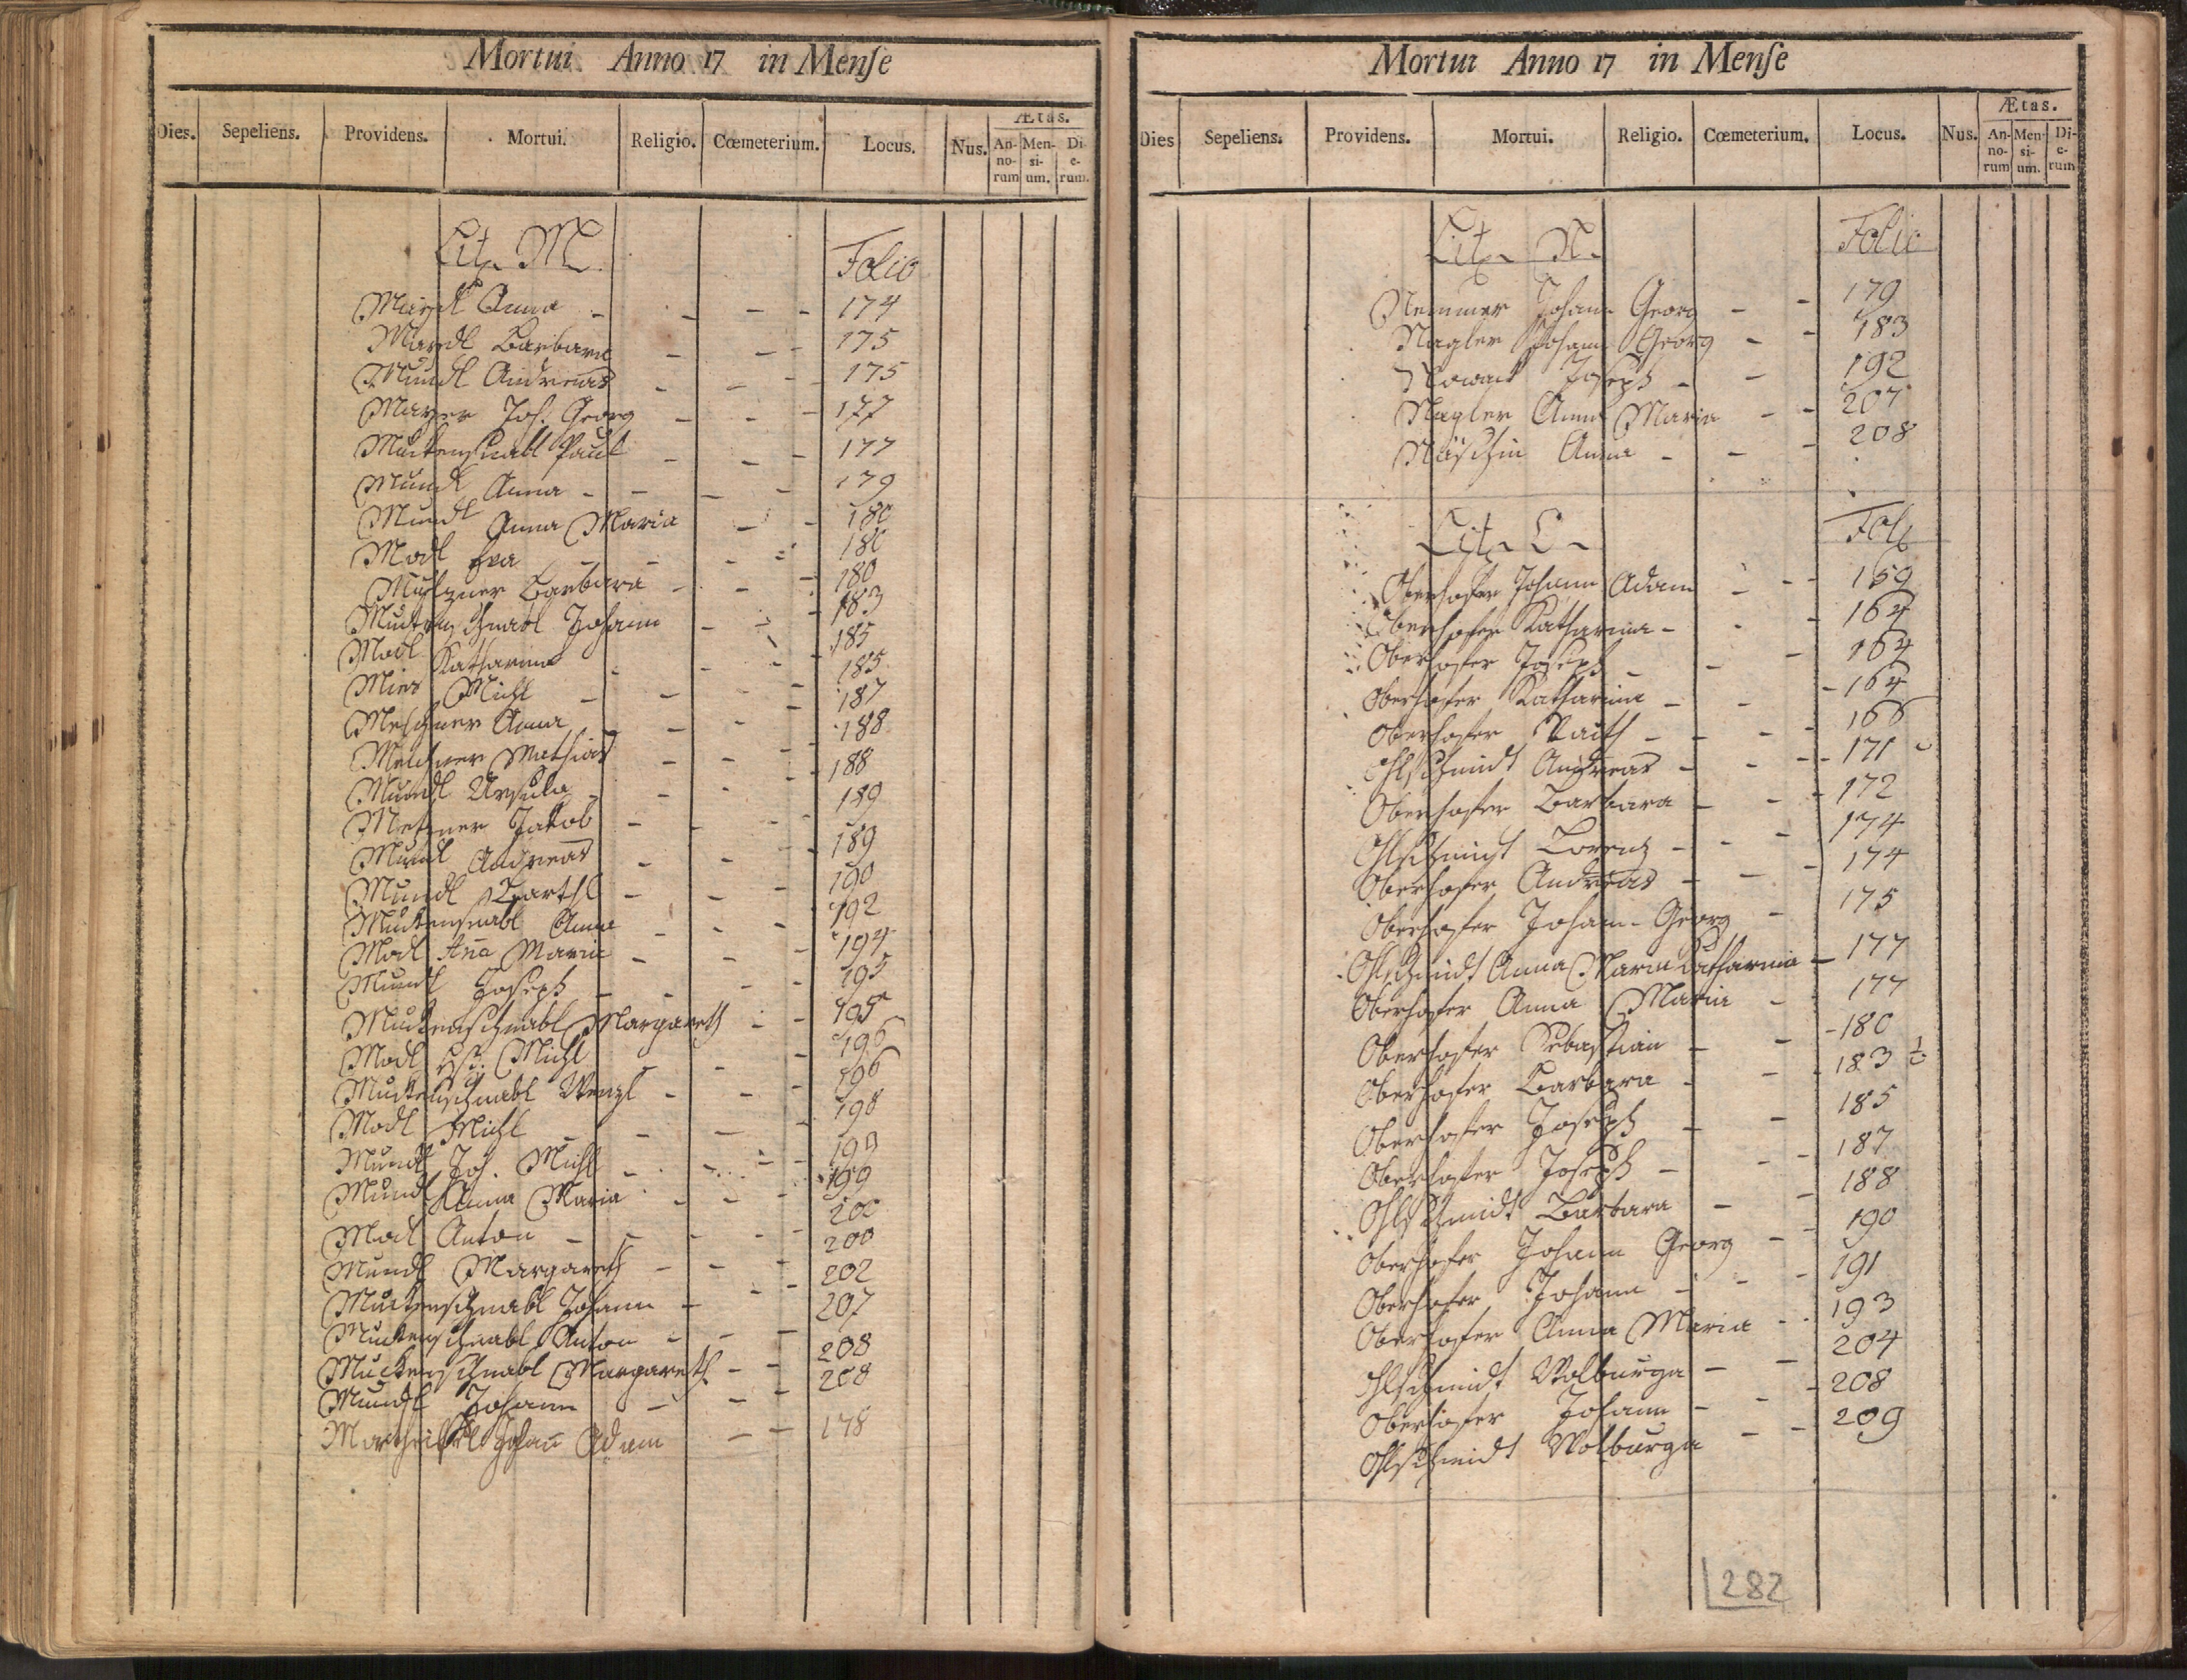 Mortui Anno 17 in Mense
Dies. Sepeliens. Providens. Mortui. Religio. Cœmeterium. Locus. Nus. Ætas.
An-no-rum Men-si-um. Di-e-rum.
Lit. M. Folio
Anna 174
Barbara 175
Mundl Andreas 175
Mayer Joh. Georg 177
Muckenschnabl Paul 177
Mundl Anna 179
Mundl Anna Maria 180
Modl Eva 180
Barbara 180
Muckenschnabl Johann 183
Modl Katharina 185
Michl 185
Anna 187
Mathias 188
Mundl Ursula 188
Metzner Jakob 189
Mundl Andreas 189
Mundl Barthl 190
Muckenschnabl Anna 192
Modl Aña Maria 194
Mundl Joseph 195
Muckenschnabl Margareth 195
Modl Michl 196
Muckenschnabl Wenzl 196
Modl Michl 198
Mundl Joh. Michl 199
Mundl Anna Maria 199
Modl Anton 200
Mundl Margareth 200
Muckenschnabl Johann 202
Muckenschnabl Anton 207
Muckenschnabl Margareth 208
Mundl Johann 208
Johañ Adam 178
Mortui Anno 17 in Mense
Dies Sepeliens. Providens. Mortui. Religio. Cœmeterium. Locus. Nus. Ætas.
An-no-rum Men-si-um. Di-e-rum
Lit. N. Folio
Nemmer Johann Georg 179
Nagler Johann Georg 183
Nowak Joseph 192
Nagler Anna Maria 207
Anna 208
Lit. O. Fol
Oberhofer Johann Adam 159
Oberhofer Katharina 164
Oberhofer Joseph 164
Oberhofer Katharina 164
Oberhofer Vaith 166
Ohlschmidt Andreas 171
Oberhofer Barbara 172
Ohlschmidt Lorenz 174
Oberhofer Andreas 174
Oberhofer Johann Georg 175
Ohlschmidt Anna Maria Katharina 177
Oberhofer Anna Maria 177
Oberhofer Sebastian 180
Oberhofer Barbara 183
Oberhofer Joseph 185
Oberhofer Joseph 187
Ohlschmidt Barbara 188
Oberhofer Johann Georg 190
Oberhofer Johann 191
Oberhofer Anna Maria 193
Ohlschmidt Wolburga 204
Oberhofer Johann 208
Ohlschmidt Wolburga 209
282